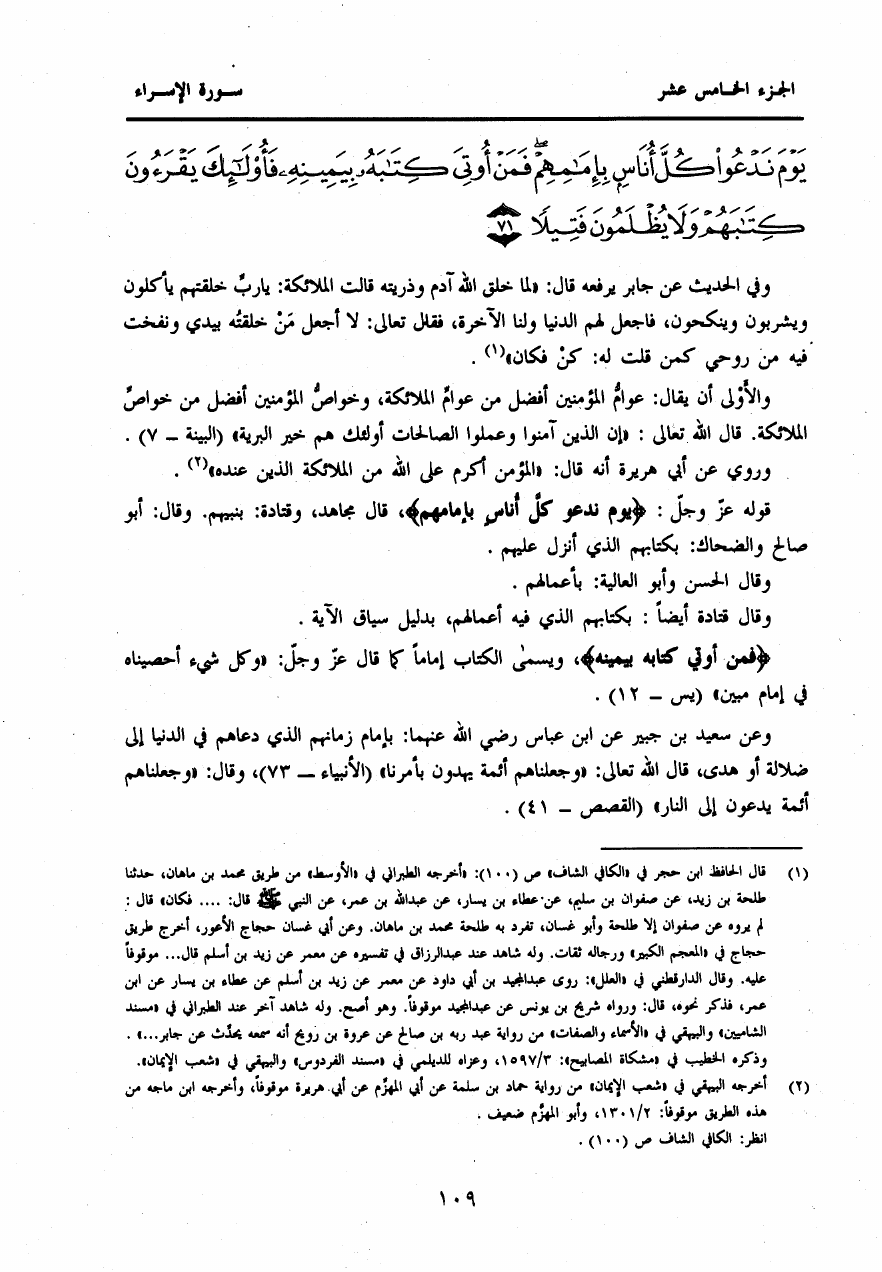 الجزء الخامس عشر
سورة الإسراء
يَوْمَ نَدْعُوا۟ كُلَّ أُنَاسٍۭ بِإِمَـٰمِهِمْ ۖ فَمَنْ أُوتِىَ كِتَـٰبَهُۥ بِيَمِينِهِۦ فَأُو۟لَـٰٓئِكَ يَقْرَءُونَ
كِتَـٰبَهُمْ وَلَا يُظْلَمُونَ فَتِيلًا ٧١
وفي الحديث عن جابر يرفعه قال: «لما خلق الله آدم وذريته قالت الملائكة: ياربِّ خلقتهم يأكلون
ويشربون وينكحون، فاجعل لهم الدنيا ولنا الآخرة، فقال تعالى: لا أجعل مَنْ خلقتُه بيدي ونفخت
فيه من روحي كمن قلت له: كنْ فكان»(١) .
والأَوْلى أن يقال: عوامُّ المؤمنين أفضل من عوامِّ الملائكة، وخواصُّ المؤمنين أفضل من خواصِّ
الملائكة. قال الله تعالى : «إن الذين آمنوا وعملوا الصالحات أولئك هم خير البرية» (البينة ــ ٧) .
وروي عن أبي هريرة أنه قال: «المؤمن أكرم على الله من الملائكة الذين عنده»(٢) .
قوله عزّ وجلّ : ﴿يوم ندعو كلَّ أناسٍ بإمامهم﴾، قال مجاهد، وقتادة: بنبيهم. وقال: أبو
صالح والضحاك: بكتابهم الذي أنزل عليهم .
وقال الحسن وأبو العالية: بأعمالهم .
وقال قتادة أيضاً : بكتابهم الذي فيه أعمالهم، بدليل سياق الآية .
﴿فمن أوتي كتابه بيمينه﴾، ويسمىٰ الكتاب إماماً كما قال عزّ وجلّ: «وكل شيء أحصيناه
في إمام مبين» (يس ــ ١٢) .
وعن سعيد بن جبير عن ابن عباس رضي الله عنهما: بإمام زمانهم الذي دعاهم في الدنيا إلى
ضلالة أو هدى، قال الله تعالى: «وجعلناهم أئمة يهدون بأمرنا» (الأنبياء ــ ٧٣)، وقال: «وجعلناهم
أئمة يدعون إلى النار» (القصص ــ ٤١) .
(١) قال الحافظ ابن حجر في «الكافي الشاف» ص (١٠٠): «أخرجه الطبراني في «الأوسط» من طريق محمد بن ماهان، حدثنا
طلحة بن زيد، عن صفوان بن سليم، عن عطاء بن يسار، عن عبدالله بن عمر، عن النبي ﷺ قال: .... فكان» قال :
لم يروه عن صفوان إلا طلحة وأبو غسان، تفرد به طلحة محمد بن ماهان. وعن أبي غسان حجاج الأعور، أخرج طريق
حجاج في «المعجم الكبير» ورجاله ثقات. وله شاهد عند عبدالرزاق في تفسيره عن معمر عن زيد بن أسلم قال... موقوفاً
عليه. وقال الدارقطني في «العلل»: روى عبدالمجيد بن أبي داود عن معمر عن زيد بن أسلم عن عطاء بن يسار عن ابن
عمر، فذكر نحوه، قال: ورواه شريح بن يونس عن عبدالمجيد موقوفاً. وهو أصح. وله شاهد آخر عند الطبراني في «مسند
الشاميين» والبيهقي في «الأسماء والصفات» من رواية عبد ربه بن صالح عن عروة بن رويح أنه سمعه يحدِّث عن جابر...» .
وذكره الخطيب في «مشكاة المصابيح»: ١٥٩٧/٣، وعزاه للديلمي في «مسند الفردوس» والبيهقي في «شعب الإيمان».
(٢) أخرجه البيهقي في «شعب الإيمان» من رواية حماد بن سلمة عن أبي المهزَّم عن أبي هريرة موقوفاً، وأخرجه ابن ماجه من
هذه الطريق موقوفاً: ١٣٠١/٢، وأبو المهزَّم ضعيف .
انظر: الكافي الشاف ص (١٠٠) .
١٠٩